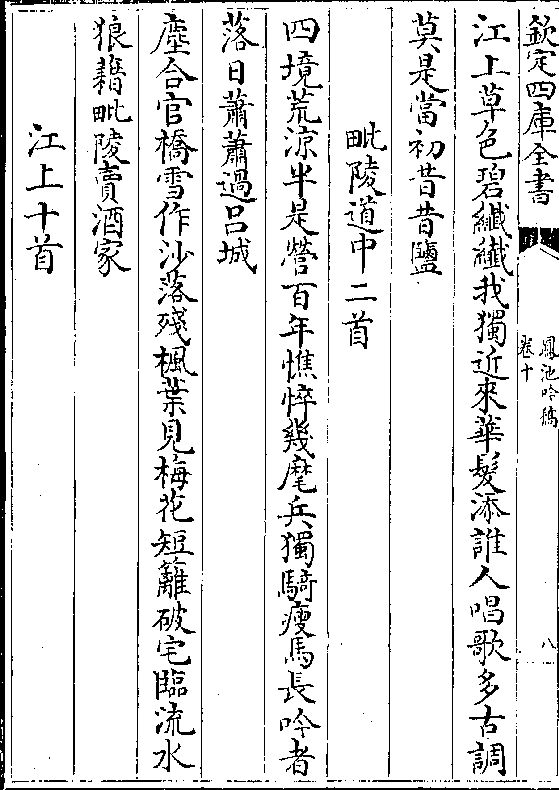 欽定四庫全書
鳳池吟稿
卷十
八
江上草色碧纖纖我獨近來華髮添誰人唱歌多古調
莫是當初昔昔鹽
毗陵道中二首
四境荒涼半是營百年憔悴幾麾兵獨騎瘦馬長吟者
落日蕭蕭過呂城
塵合官橋雪作沙落殘楓葉見梅花短籬破宅臨流水
狼藉毗陵賣酒家
江上十首